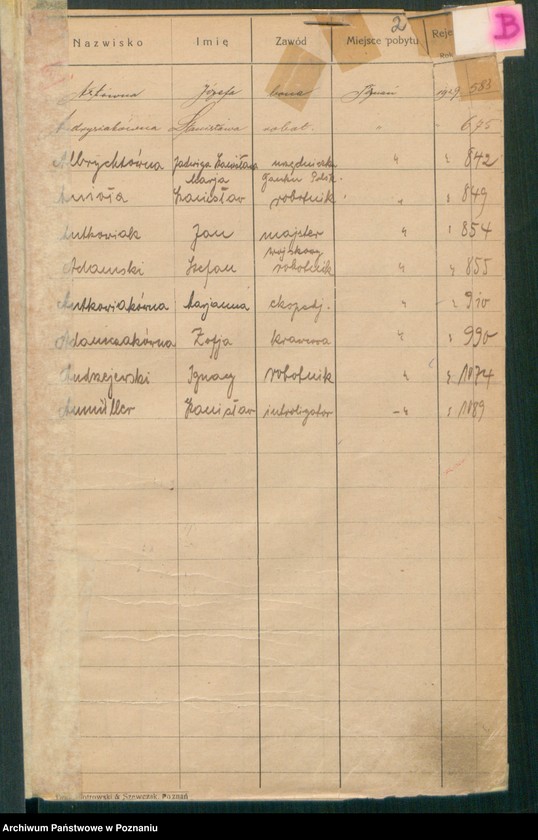 2
B
Nazwisko Imię Zawód Miejsce pobytu Reje
Józefa bona Poznań 1929 583
Stanisława robot. " " 675
Albrychtówna Jadwiga Stanisława 842
Marja
Aniоła Stanisław robotnik " " 849
Antkowiak Jan majster " " 854
wojskowy
Adamski Stefan robotnik " " 855
Antkowiakówna Marjanna ekspedj. " " 910
Adamczakówna Zofja krawcowa " " 990
Andrzejewski Ignacy robotnik " " 1074
Aumüller Stanisław introligator " " 1089
& Szewczak, Poznań
Archiwum Państwowe w Poznaniu